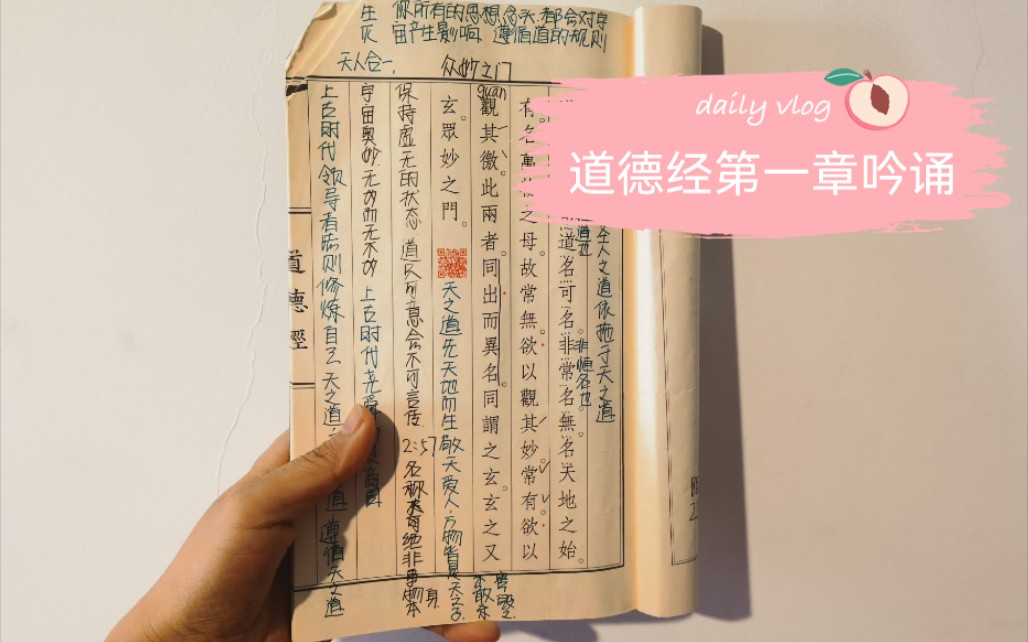 daily vlog
道德经第一章吟诵
你所有的思想念头.都会对宇
宙产生影响. 遵循道的规则
天人合一.
众妙之门
guan
人之道依拖于天之道
道名可名。非常名。無名天地之始。
非恒名也
有名萬
之母。故常無。欲以觀其妙。常有欲以
觀其徼。此兩者。同出而異名。同謂之玄。玄之又
玄。眾妙之門。
天之道先天地而生敬天爱人.万物皆是天之子
保持虚无的状态 道只可意会不可言传 2:57 名称
宇宙奥妙.无为而无不为 上古时代尧舜
上古时代领导者
修炼自己 天之道
遵循天之道
道德經